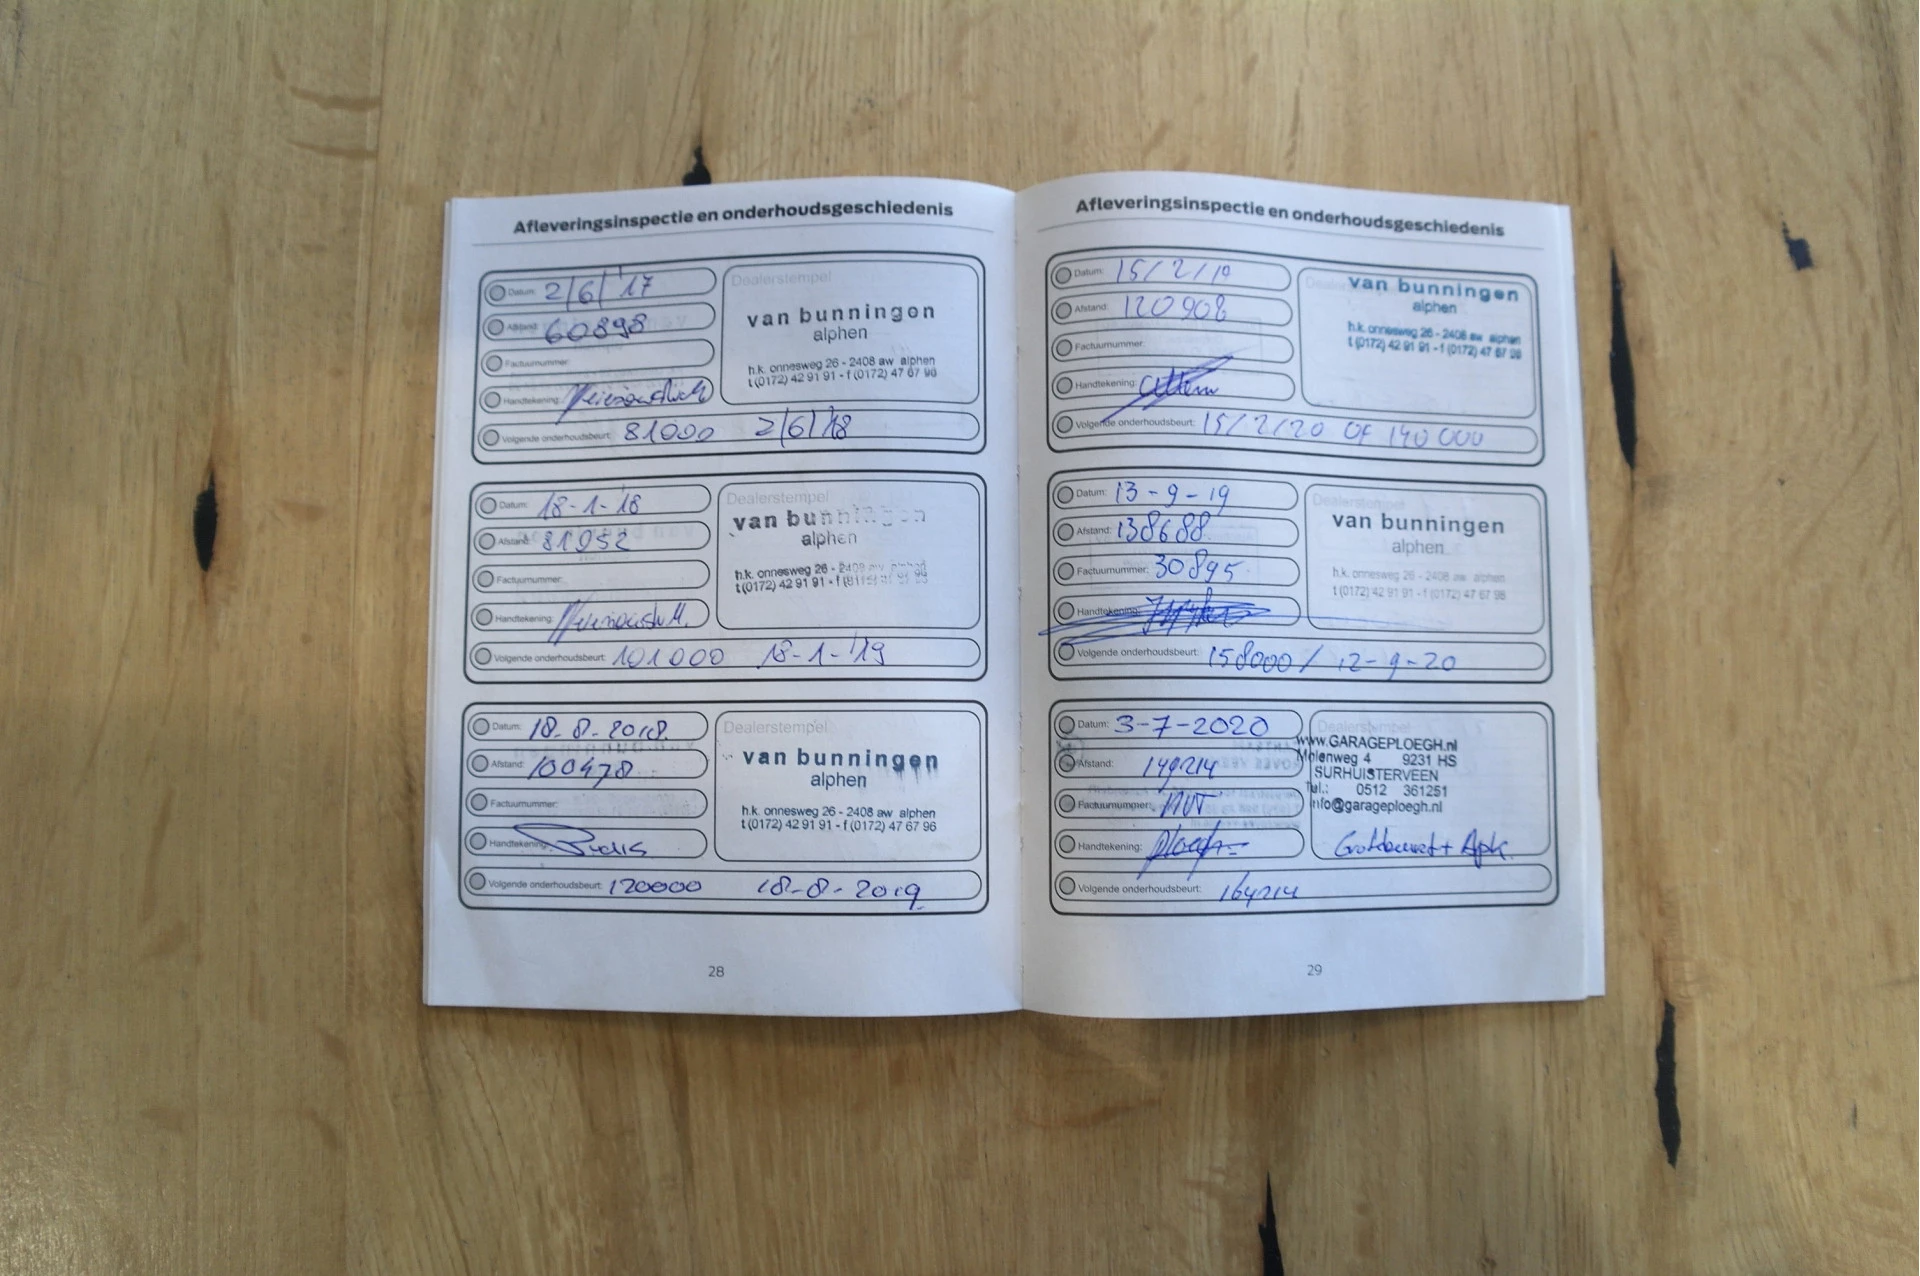 Afleveringsinspectie en onderhoudsgeschiedenis
Datum: 2/6/'17
Afstand: 60898
Factuurnummer:
Handtekening:
Dealerstempel
van bunningen
alphen
h.k. onnesweg 26 - 2408 aw alphen
t (0172) 42 91 91 - f (0172) 47 67 96
Volgende onderhoudsbeurt: 81000 2/6/'18
Datum: 18-1-'18
Afstand: 81952
Factuurnummer:
Handtekening:
Dealerstempel
van bunningen
alphen
h.k. onnesweg 26 - 2408 aw alphen
t (0172) 42 91 91 - f
Volgende onderhoudsbeurt: 101000 18-1-'19
Datum: 18-8-2018.
Afstand: 100478
Factuurnummer:
Handtekening:
Dealerstempel
van bunningen
alphen
h.k. onnesweg 26 - 2408 aw alphen
t (0172) 42 91 91 - f (0172) 47 67 96
Volgende onderhoudsbeurt: 120000 18-8-2019
28
Afleveringsinspectie en onderhoudsgeschiedenis
Datum: 15/2/19
Afstand: 120908
Factuurnummer:
Handtekening:
van bunningen
alphen
h.k. onnesweg 26 - 2408 aw alphen
t (0172) 42 91 91 - f (0172) 47 67 96
Volgende onderhoudsbeurt: 15/2/20 OF 140 000
Datum: 13-9-19
Afstand: 138688
Factuurnummer: 30895
Handtekening:
Dealerstempel
van bunningen
alphen
h.k. onnesweg 26 - 2408 aw alphen
t (0172) 42 91 91 - f (0172) 47 67 96
Volgende onderhoudsbeurt: 158000 / 12-9-20
Datum: 3-7-2020
Afstand: 149214
Factuurnummer:
Handtekening:
Dealerstempel
www.GARAGEPLOEGH.nl
Molenweg 4 9231 HS
SURHUISTERVEEN
Tel.: 0512 361251
info@garageploegh.nl
Grotebeurt + Apk.
Volgende onderhoudsbeurt: 164214
29